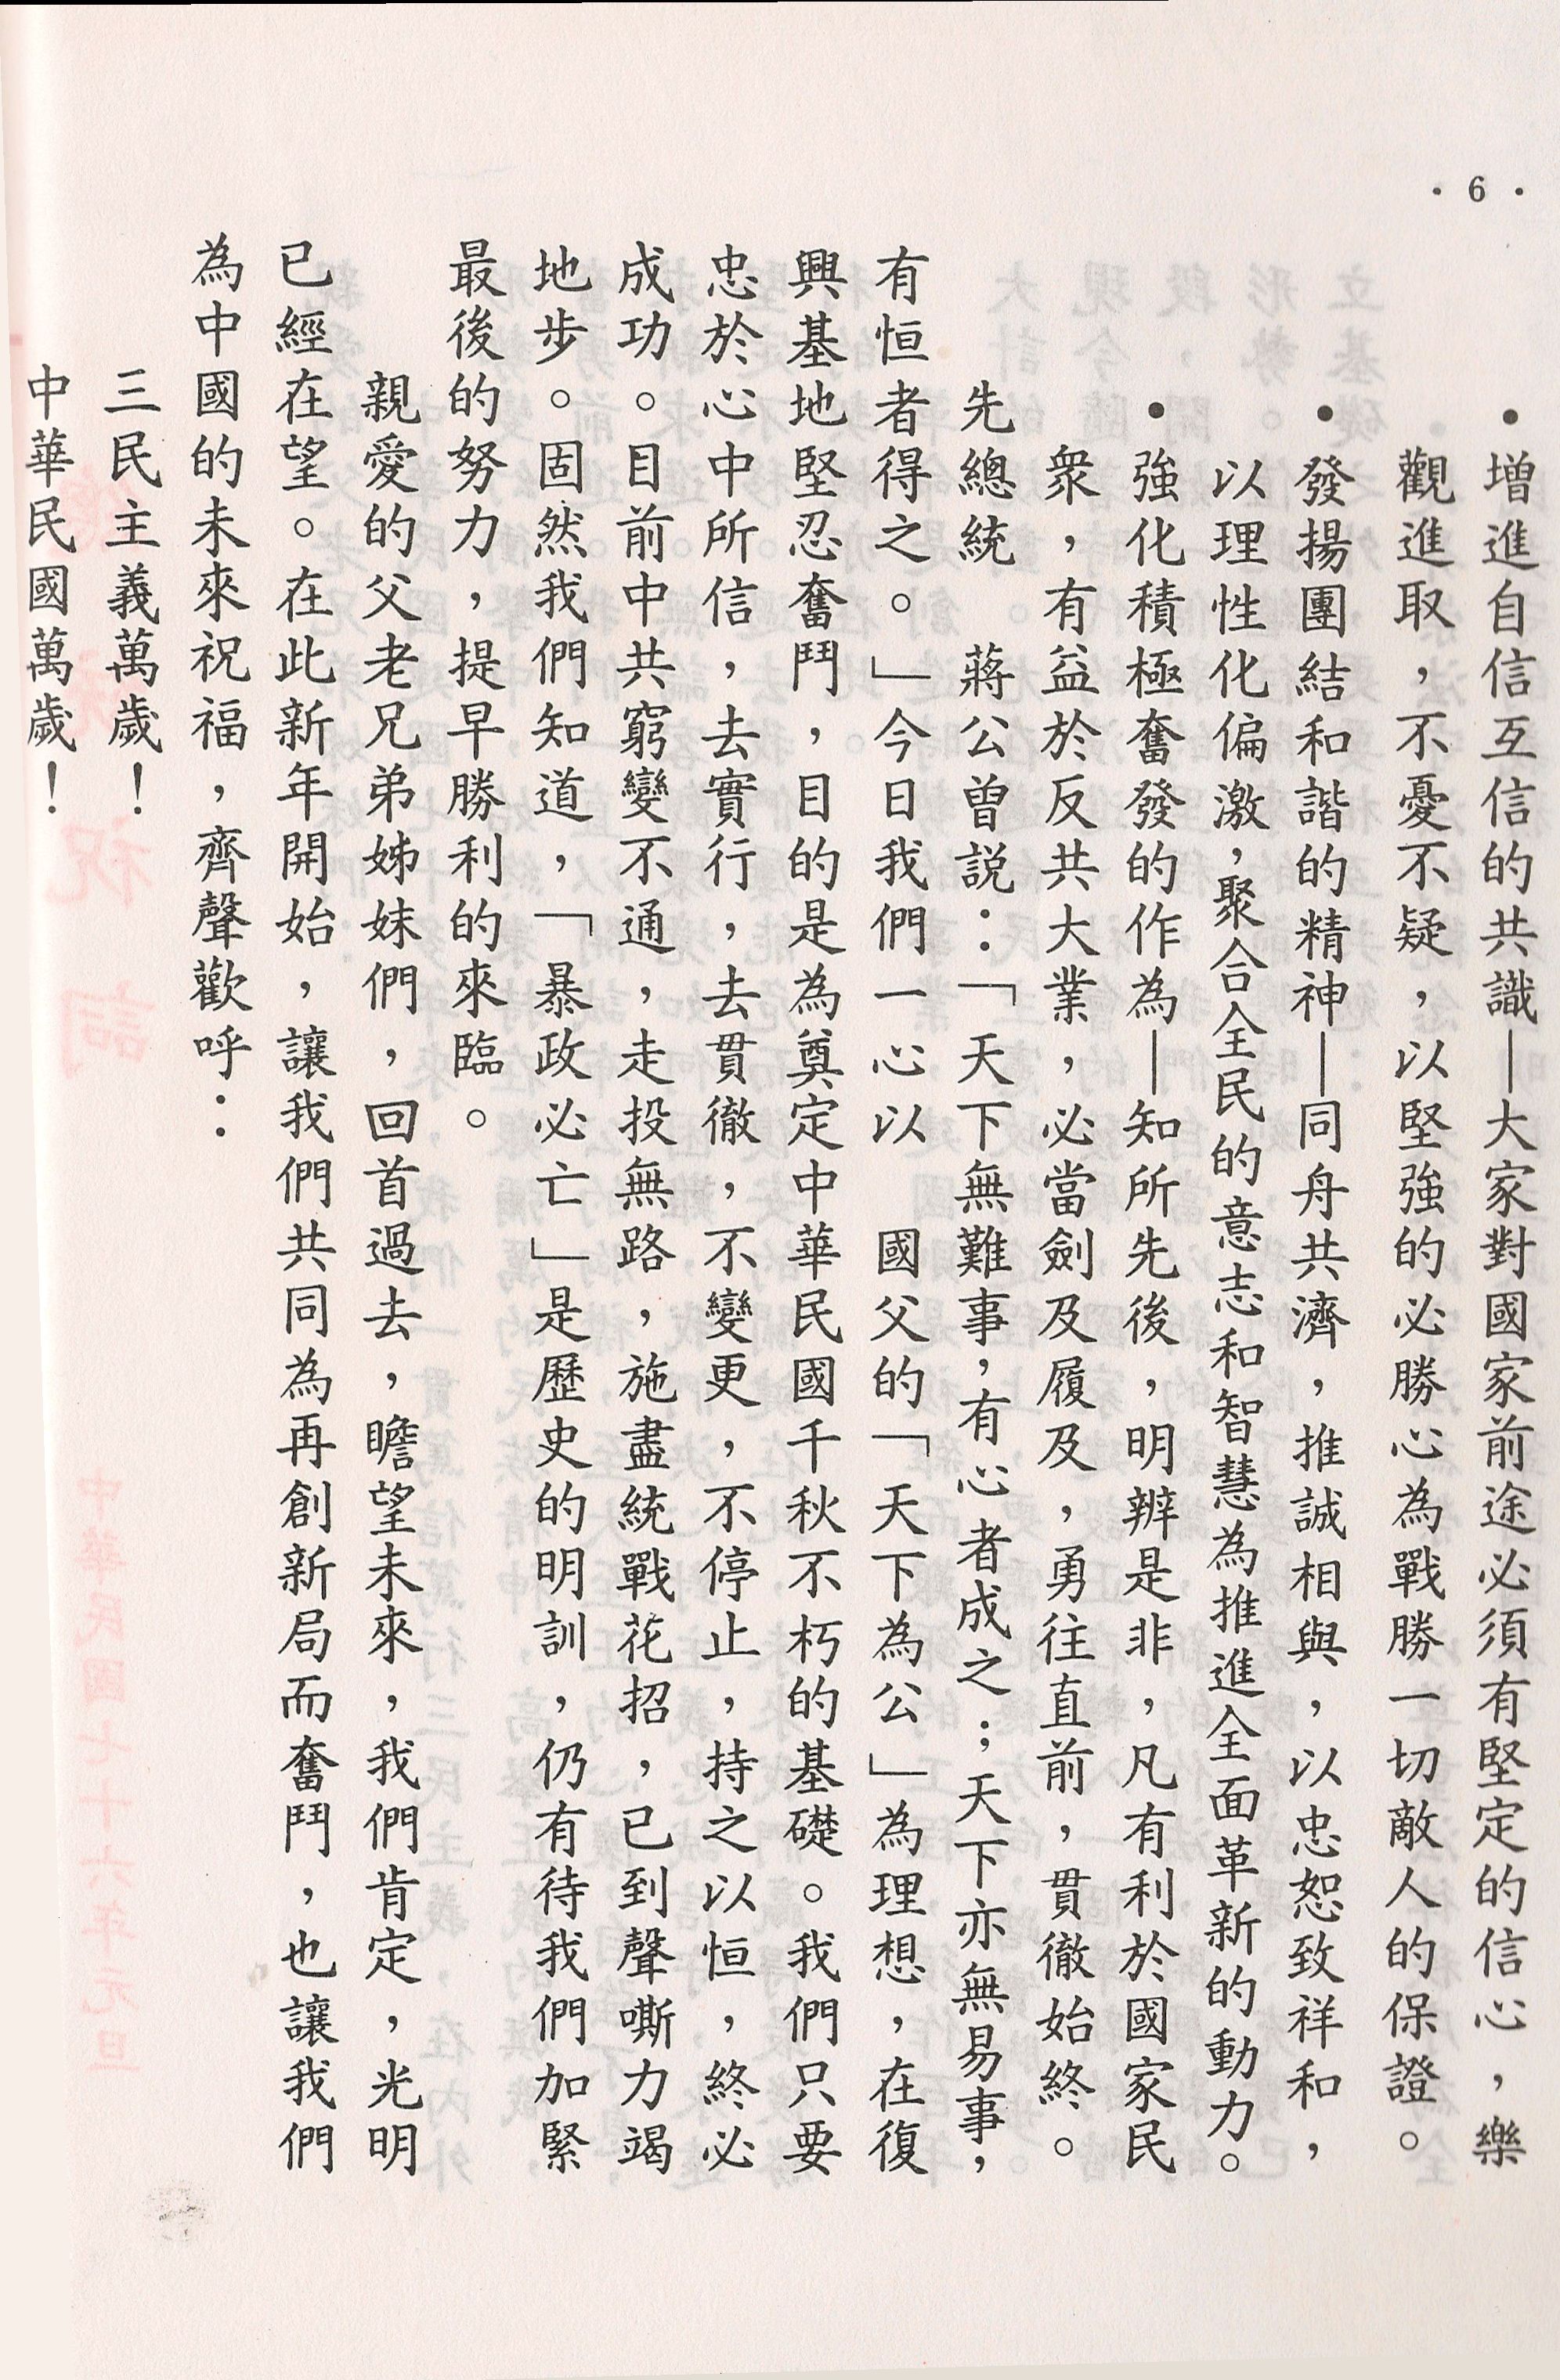 · 6 ·
•增進自信互信的共識—大家對國家前途必須有堅定的信心，樂
觀進取，不憂不疑，以堅強的必勝心為戰勝一切敵人的保證。
•發揚團結和諧的精神—同舟共濟，推誠相與，以忠恕致祥和，
以理性化偏激，聚合全民的意志和智慧為推進全面革新的動力。
•強化積極奮發的作為—知所先後，明辨是非，凡有利於國家民
衆，有益於反共大業，必當劍及履及，勇往直前，貫徹始終。
先總統　蔣公曾説：「天下無難事，有心者成之；天下亦無易事，
有恒者得之。」今日我們一心以　國父的「天下為公」為理想，在復
興基地堅忍奮鬥，目的是為奠定中華民國千秋不朽的基礎。我們只要
忠於心中所信，去實行，去貫徹，不變更，不停止，持之以恒，終必
成功。目前中共窮變不通，走投無路，施盡統戰花招，已到聲嘶力竭
地步。固然我們知道，「暴政必亡」是歷史的明訓，仍有待我們加緊
最後的努力，提早勝利的來臨。
親愛的父老兄弟姊妹們，回首過去，瞻望未來，我們肯定，光明
已經在望。在此新年開始，讓我們共同為再創新局而奮鬥，也讓我們
為中國的未來祝福，齊聲歡呼：
三民主義萬歲！
中華民國萬歲！